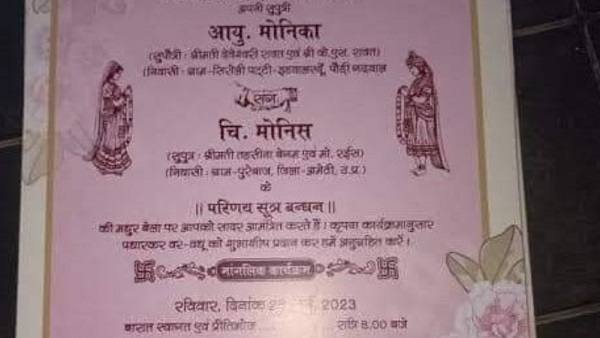 अपनी सुपुत्री
आयु. मोनिका
(सुपौत्री : श्रीमती देवेश्वरी रावत एवं श्री के.एस. रावत)
(निवासी : ग्राम-सिरोली पट्टी-इडवालस्यूँ, पौड़ी गढ़वाल
संग
चि. मोनिस
(सुपुत्र : श्रीमती तहसीना बेगम एवं मो. रईस)
(निवासी : ग्राम-पुरेबाज, जिला-अमेठी, उ.प्र.)
के
|| परिणय सूत्र बन्धन ||
की मधुर बेला पर आपको सादर आमंत्रित करते हैं। कृपया कार्यक्रमानुसार
पधारकर वर-वधू को शुभाशीष प्रदान कर हमें अनुग्रहित करें।
मांगलिक कार्यक्रम
रविवार, दिनांक 2023
बारात स्वागत एवं प्रीतिभोज रात्रि 8.00 बजे